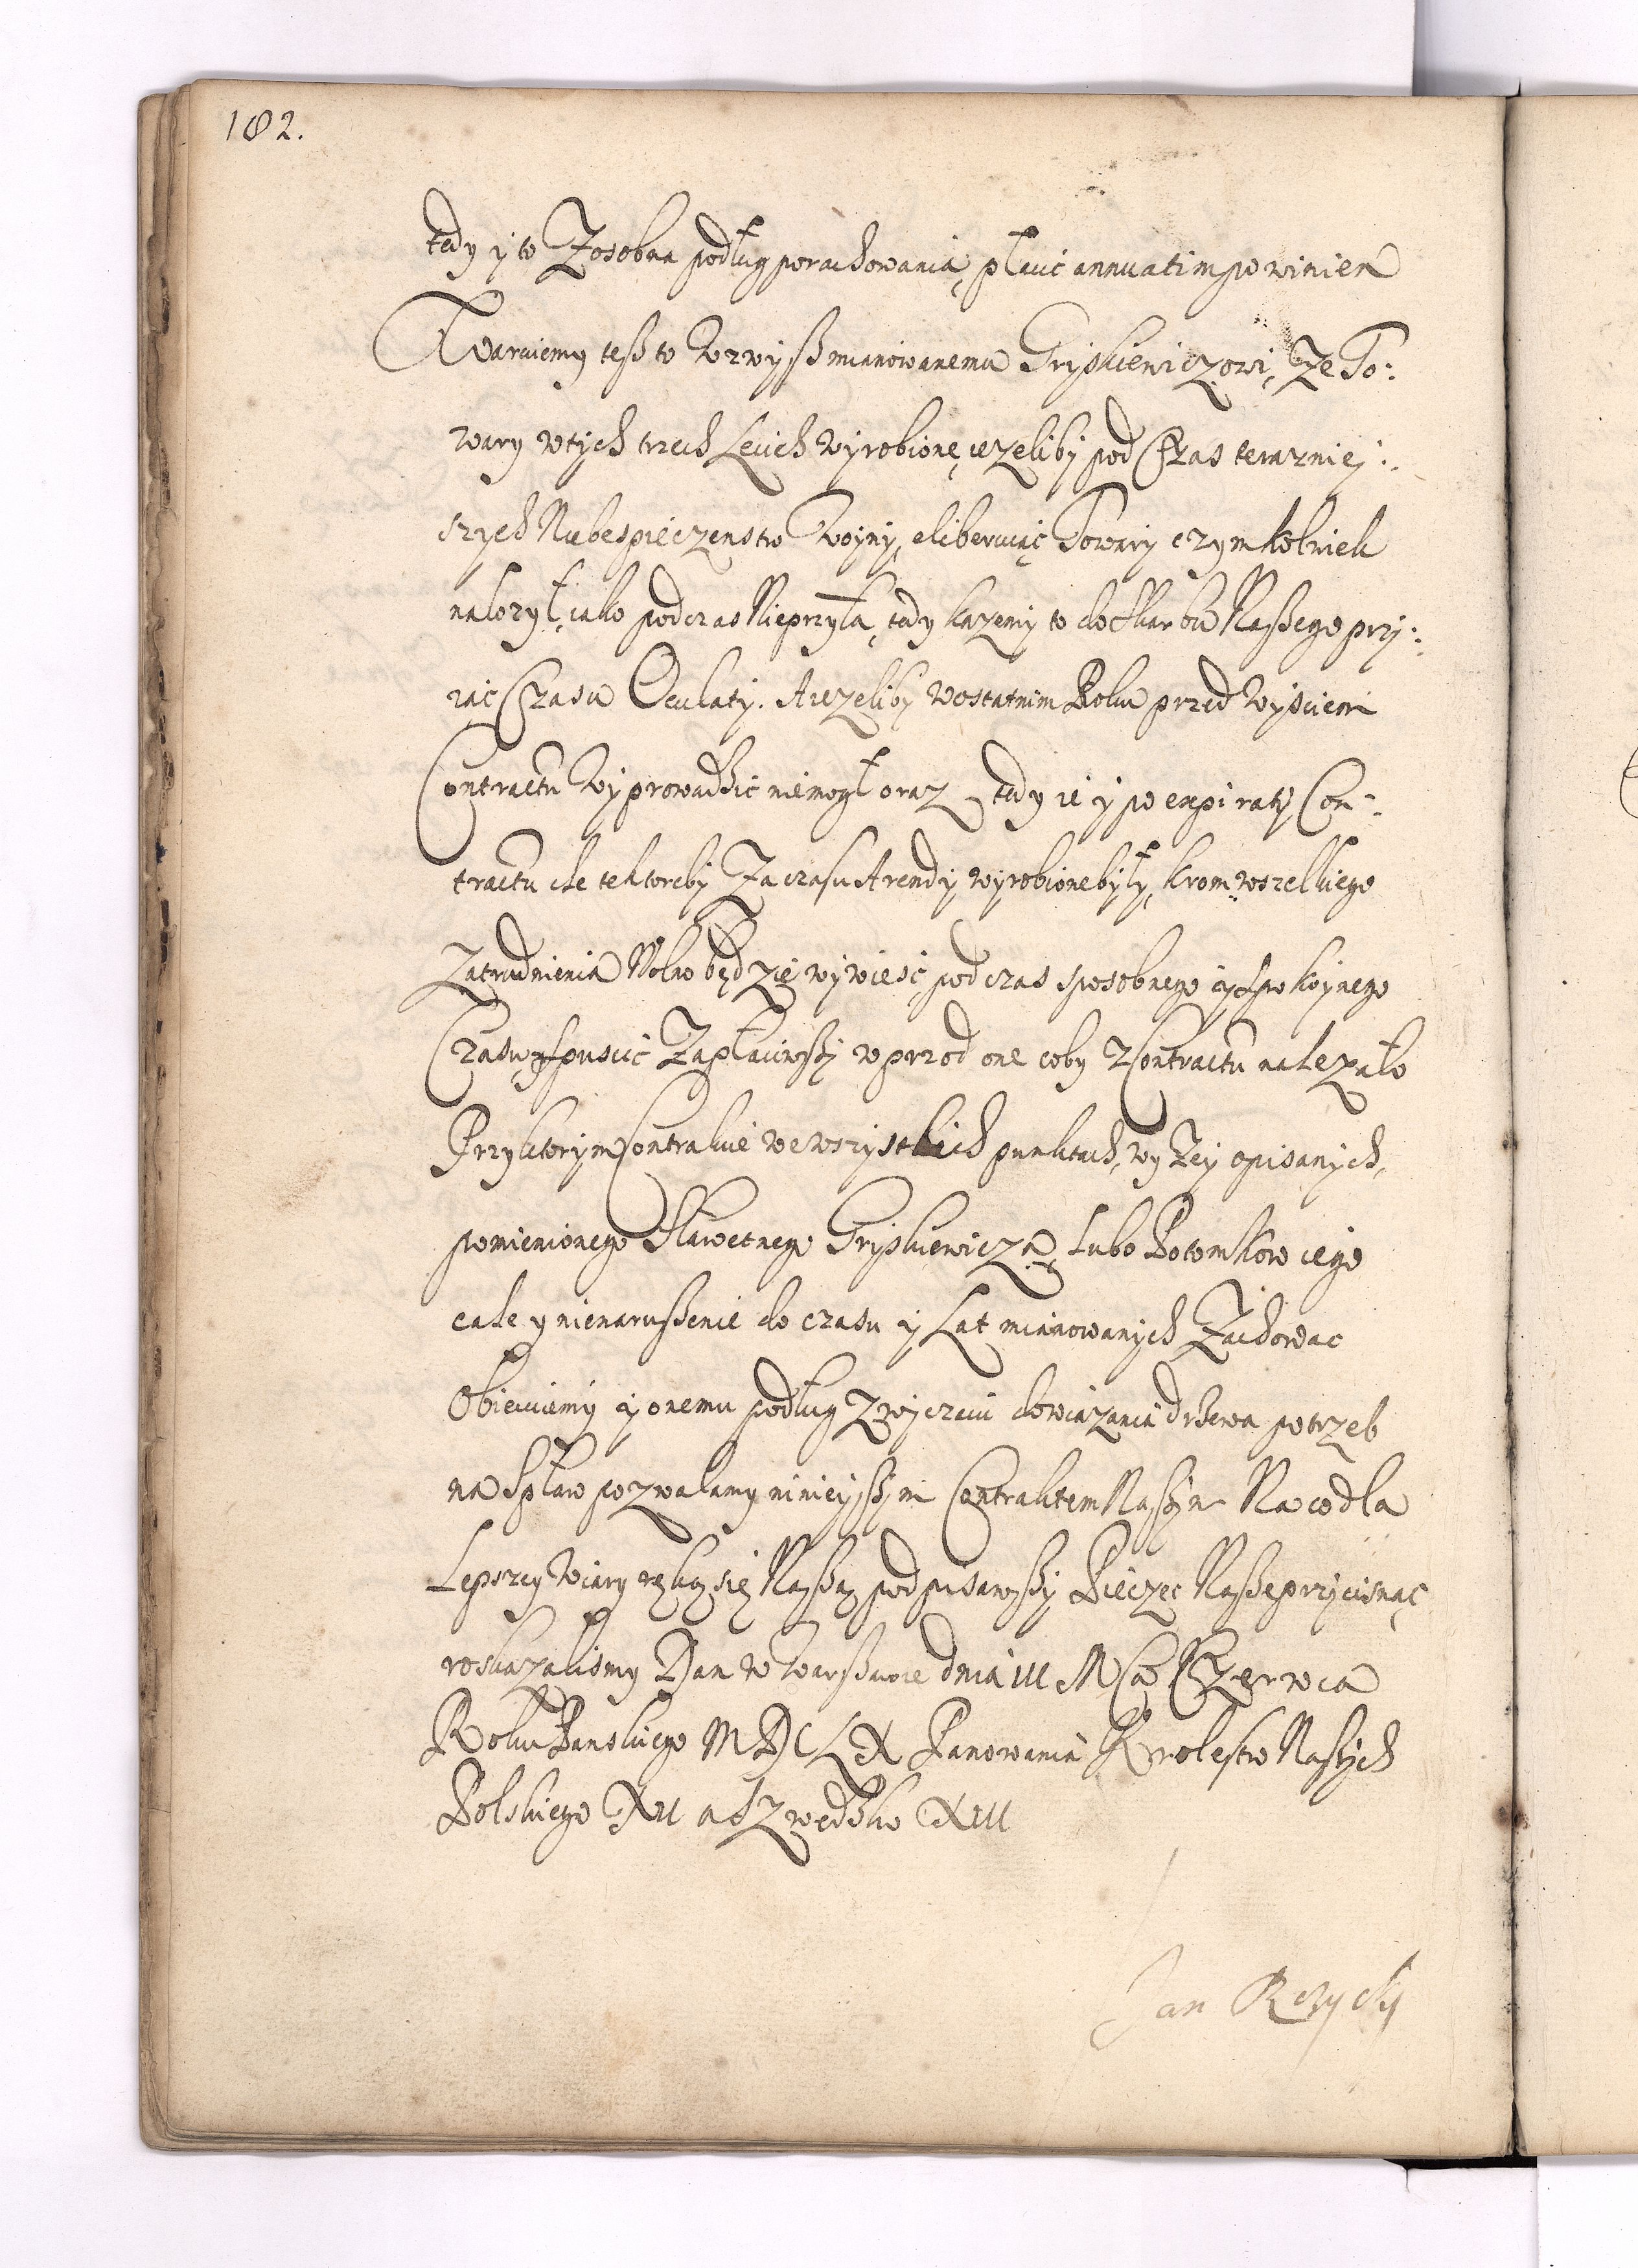 182.
tedy y to Zosobna podług porachowania, płacić annuatim powinien
Warujemy tesz to Wzwysz mianowanemu Gryskiewiczowi, Ze To:
wary wtych trzech Leciech wyrobione, iezeliby pod Czas terazniey:
szych Niebespieczenstw Woyny, eliberuiąc Towary czymkolwiek
nalozył, iako podczas Nieprzyla, tedy kazemy to do Skarbu Naszego przy:
iąć Czasu Oculaty. A iezeliby wostatnim Roku przed Wysciem
Contractu Wyprowadzic niemogł oraz, tedy ie y po expiraty Con:
tractu ale te ktoreby Za czasu Arendy wyrobione były, krom wszelkiego
Zatrudnienia Wolno będzie wywiesć, pod czas sposobnego y spokoynego
Czasu, spuscić Zapłaciwszy wprzod one coby z Contractu nalezało
Przyktorym Contrakcie we wszystkich punktach, wyzey opisanych,
pomienionego Sławetnego Gryskiewicza, Lubo Potomkow iego
cale y nienaruszenie do czasu y Lat mianowanych Zachowac
Obiecuiemy y onemu podług Zwyczaiu dowiązania drzewa potrzeb
na Spław pozwalamy ninieyszym Contraktem Naszym Na co dla
Lepszey Wiary ręką się Naszą podpisawszy Pieczęc Nasze przycisnąć
roskazalismy Dan w Warszawie dnia III MCa Czerwca
Roku Panskiego MDCLX Panowania Krolestw Naszych
Polskiego XII a Szwedzko XIII
Jan Rczycky